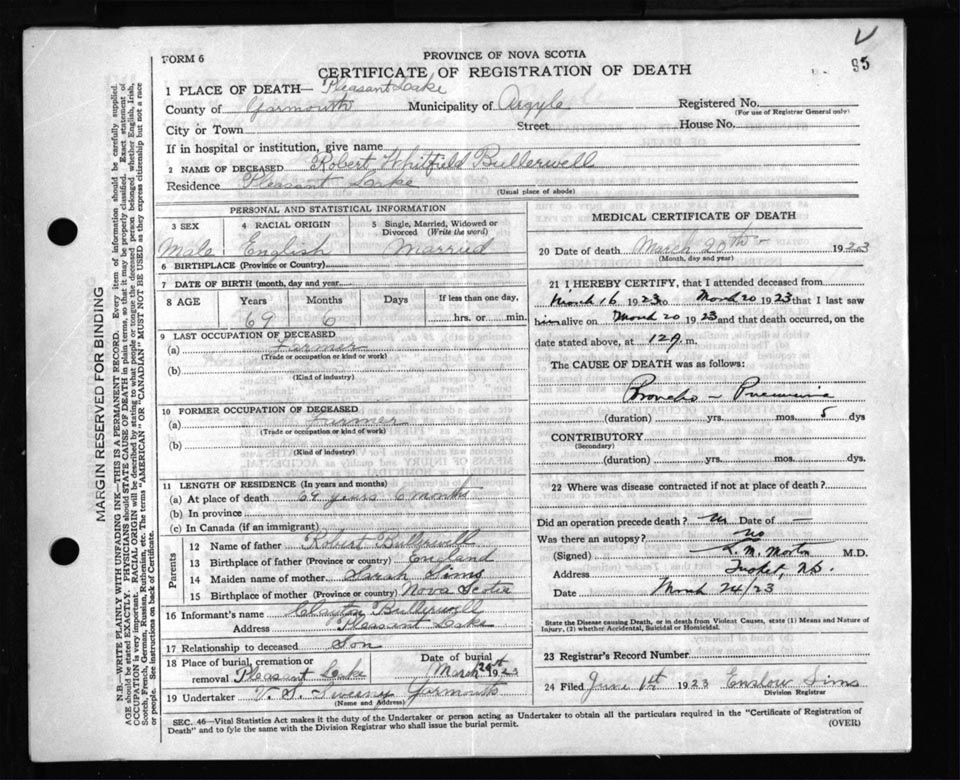 FORM 6
PROVINCE OF NOVA SCOTIA
CERTIFICATE OF REGISTRATION OF DEATH
95
1 PLACE OF DEATH— Pleasant Lake
County of Yarmouth Municipality of Argyle Registered No.
(For use of Registrar General only)
City or Town Street House No.
If in hospital or institution, give name
2 NAME OF DECEASED Robert Whitfield Bullerwell
Residence Pleasant Lake
(Usual place of abode)
PERSONAL AND STATISTICAL INFORMATION
3 SEX 4 RACIAL ORIGIN 5 Single, Married, Widowed or Divorced (Write the word)
Male English Married
6 BIRTHPLACE (Province or Country)
7 DATE OF BIRTH (month, day and year)
8 AGE Years Months Days If less than one day,
69 6 hrs. or min.
9 LAST OCCUPATION OF DECEASED
(a) Farmer
(Trade or occupation or kind of work)
(b)
(Kind of industry)
10 FORMER OCCUPATION OF DECEASED
(a) Farmer
(Trade or occupation or kind of work)
(b)
(Kind of industry)
11 LENGTH OF RESIDENCE (In years and months)
(a) At place of death 69 years 6 months
(b) In province
(c) In Canada (if an immigrant)
Parents
12 Name of father Robert Bullerwell
13 Birthplace of father (Province or country) England
14 Maiden name of mother Sarah Sims
15 Birthplace of mother (Province or country) Nova Scotia
16 Informant's name Clayton Bullerwell
Address Pleasant Lake
17 Relationship to deceased Son
18 Place of burial, cremation or removal Pleasant Lake Date of burial March 1923
19 Undertaker V. S. Sweeny Yarmouth
(Name and Address)
MEDICAL CERTIFICATE OF DEATH
20 Date of death March 20th - 1923
(Month, day and year)
21 I HEREBY CERTIFY, that I attended deceased from
March 16 1923 to March 20 1923 that I last saw
him alive on March 20 1923 and that death occurred, on the
date stated above, at 12 m.
The CAUSE OF DEATH was as follows:
Broncho - Pneumonia
(duration) yrs. mos. 5 dys
CONTRIBUTORY
(Secondary)
(duration) yrs. mos. dys.
22 Where was disease contracted if not at place of death?
Did an operation precede death? No Date of —
Was there an autopsy? No
(Signed) L. M. Morton M.D.
Address Tusket, N.S.
Date March 24/23
State the Disease causing Death, or in death from Violent Causes, state (1) Means and Nature of Injury, (2) whether Accidental, Suicidal or Homicidal.
23 Registrar's Record Number
24 Filed June 1st 1923 Enslow Sims
Division Registrar
SEC. 46—Vital Statistics Act makes it the duty of the Undertaker or person acting as Undertaker to obtain all the particulars required in the "Certificate of Registration of
Death" and to fyle the same with the Division Registrar who shall issue the burial permit.
(OVER)
MARGIN RESERVED FOR BINDING
N.B.—WRITE PLAINLY WITH UNFADING INK—THIS IS A PERMANENT RECORD. Every item of information should be carefully supplied.
AGE should be stated EXACTLY. PHYSICIANS should STATE CAUSE OF DEATH in plain terms, so that it may be properly classified. Exact statement of
OCCUPATION is very important. RACIAL ORIGIN will be described by stating to what people or tongue the deceased person belonged whether English, Irish,
Scotch, French, German, Russian, Ruthenian, etc. The terms "AMERICAN" OR "CANADIAN" MUST NOT BE USED as they express citizenship but not a race
or people. See instructions on back of Certificate.